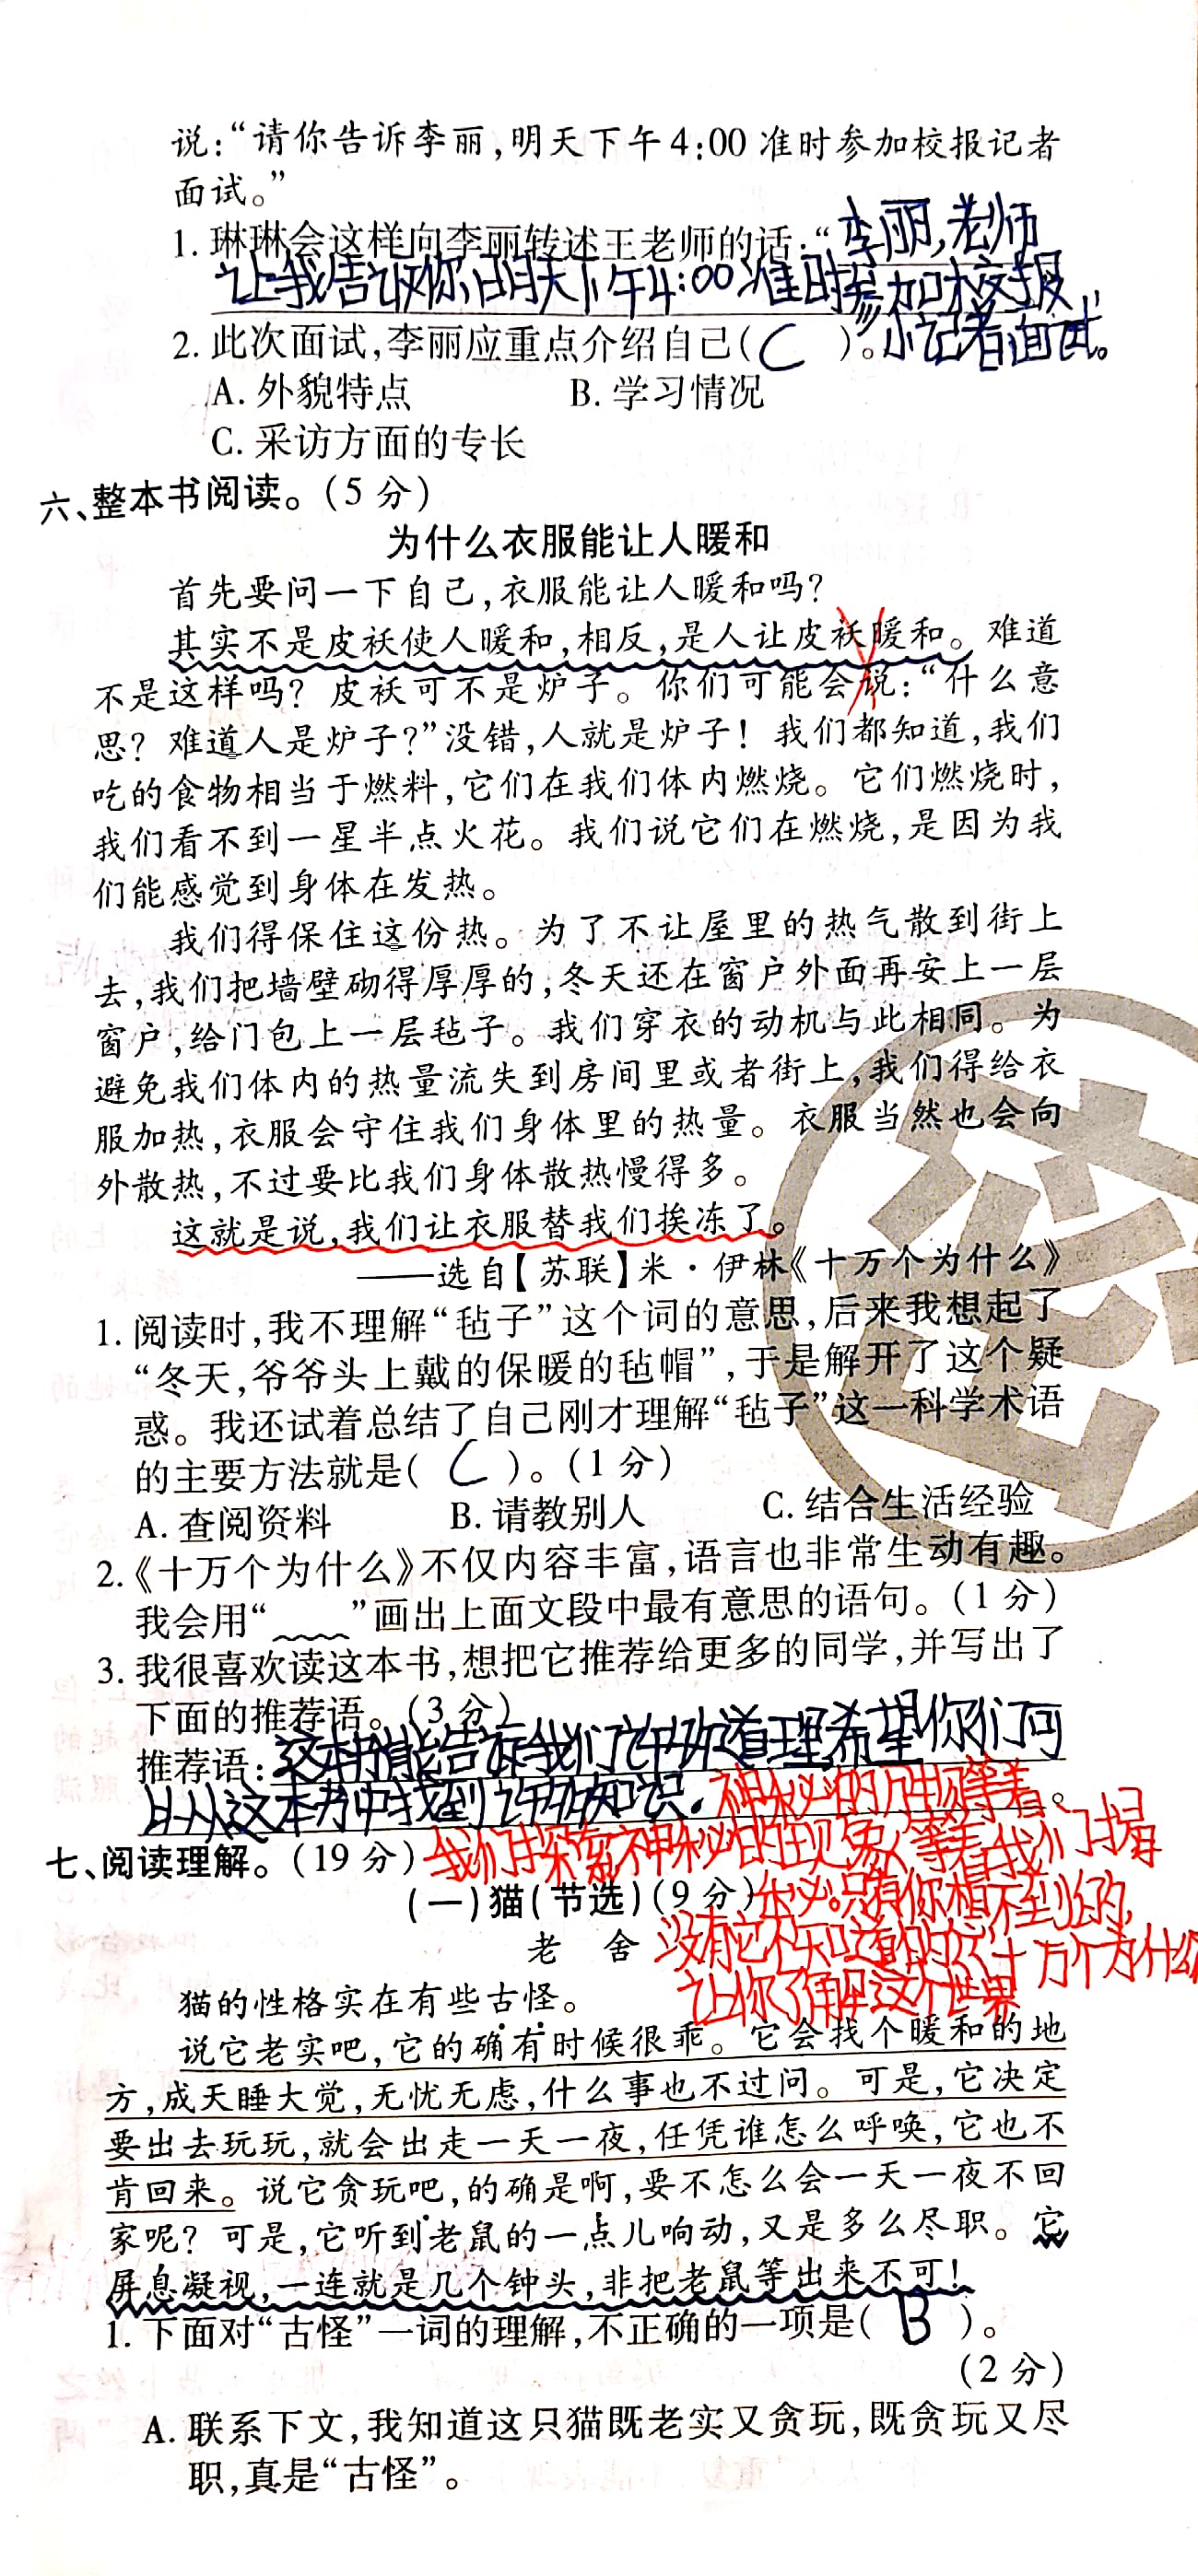 说：“请你告诉李丽，明天下午4:00准时参加校报记者
面试。”
1. 琳琳会这样向李丽转述王老师的话：“李丽，老师
让我告诉你明天下午4:00准时参加校报
小记者面试。”
2. 此次面试，李丽应重点介绍自己（C）。
A. 外貌特点 B. 学习情况
C. 采访方面的专长
六、整本书阅读。（5分）
为什么衣服能让人暖和
首先要问一下自己，衣服能让人暖和吗？
其实不是皮袄使人暖和，相反，是人让皮袄暖和。难道
不是这样吗？皮袄可不是炉子。你们可能会说：“什么意
思？难道人是炉子？”没错，人就是炉子！我们都知道，我们
吃的食物相当于燃料，它们在我们体内燃烧。它们燃烧时，
我们看不到一星半点火花。我们说它们在燃烧，是因为我
们能感觉到身体在发热。
我们得保住这份热。为了不让屋里的热气散到街上
去，我们把墙壁砌得厚厚的，冬天还在窗户外面再安上一层
窗户，给门包上一层毡子。我们穿衣的动机与此相同。为
避免我们体内的热量流失到房间里或者街上，我们得给衣
服加热，衣服会守住我们身体里的热量。衣服当然也会向
外散热，不过要比我们身体散热慢得多。
这就是说，我们让衣服替我们挨冻了。
——选自【苏联】米·伊林《十万个为什么》
1. 阅读时，我不理解“毡子”这个词的意思，后来我想起了
“冬天，爷爷头上戴的保暖的毡帽”，于是解开了这个疑
惑。我还试着总结了自己刚才理解“毡子”这一科学术语
的主要方法就是（C）。（1分）
A. 查阅资料 B. 请教别人 C. 结合生活经验
2.《十万个为什么》不仅内容丰富，语言也非常生动有趣。
我会用“﹏﹏”画出上面文段中最有意思的语句。（1分）
3. 我很喜欢读这本书，想把它推荐给更多的同学，并写出了
下面的推荐语。（3分）
推荐语：这本书能告诉我们许多道理希望你们可
以从这本书中找到许多知识。神秘的历史等着
我们去探索神秘的现象等着我们揭
七、阅读理解。（19分）
（一）猫（节选）（9分）
秘。只有你想不到的，
老 舍
没有它不知道的十万个为什么
让你了解这个世界
猫的性格实在有些古怪。
说它老实吧，它的确有时候很乖。它会找个暖和的地
方，成天睡大觉，无忧无虑，什么事也不过问。可是，它决定
要出去玩玩，就会出走一天一夜，任凭谁怎么呼唤，它也不
肯回来。说它贪玩吧，的确是啊，要不怎么会一天一夜不回
家呢？可是，它听到老鼠的一点儿响动，又是多么尽职。它
屏息凝视，一连就是几个钟头，非把老鼠等出来不可！
1. 下面对“古怪”一词的理解，不正确的一项是（B）。
（2分）
A. 联系下文，我知道这只猫既老实又贪玩，既贪玩又尽
职，真是“古怪”。